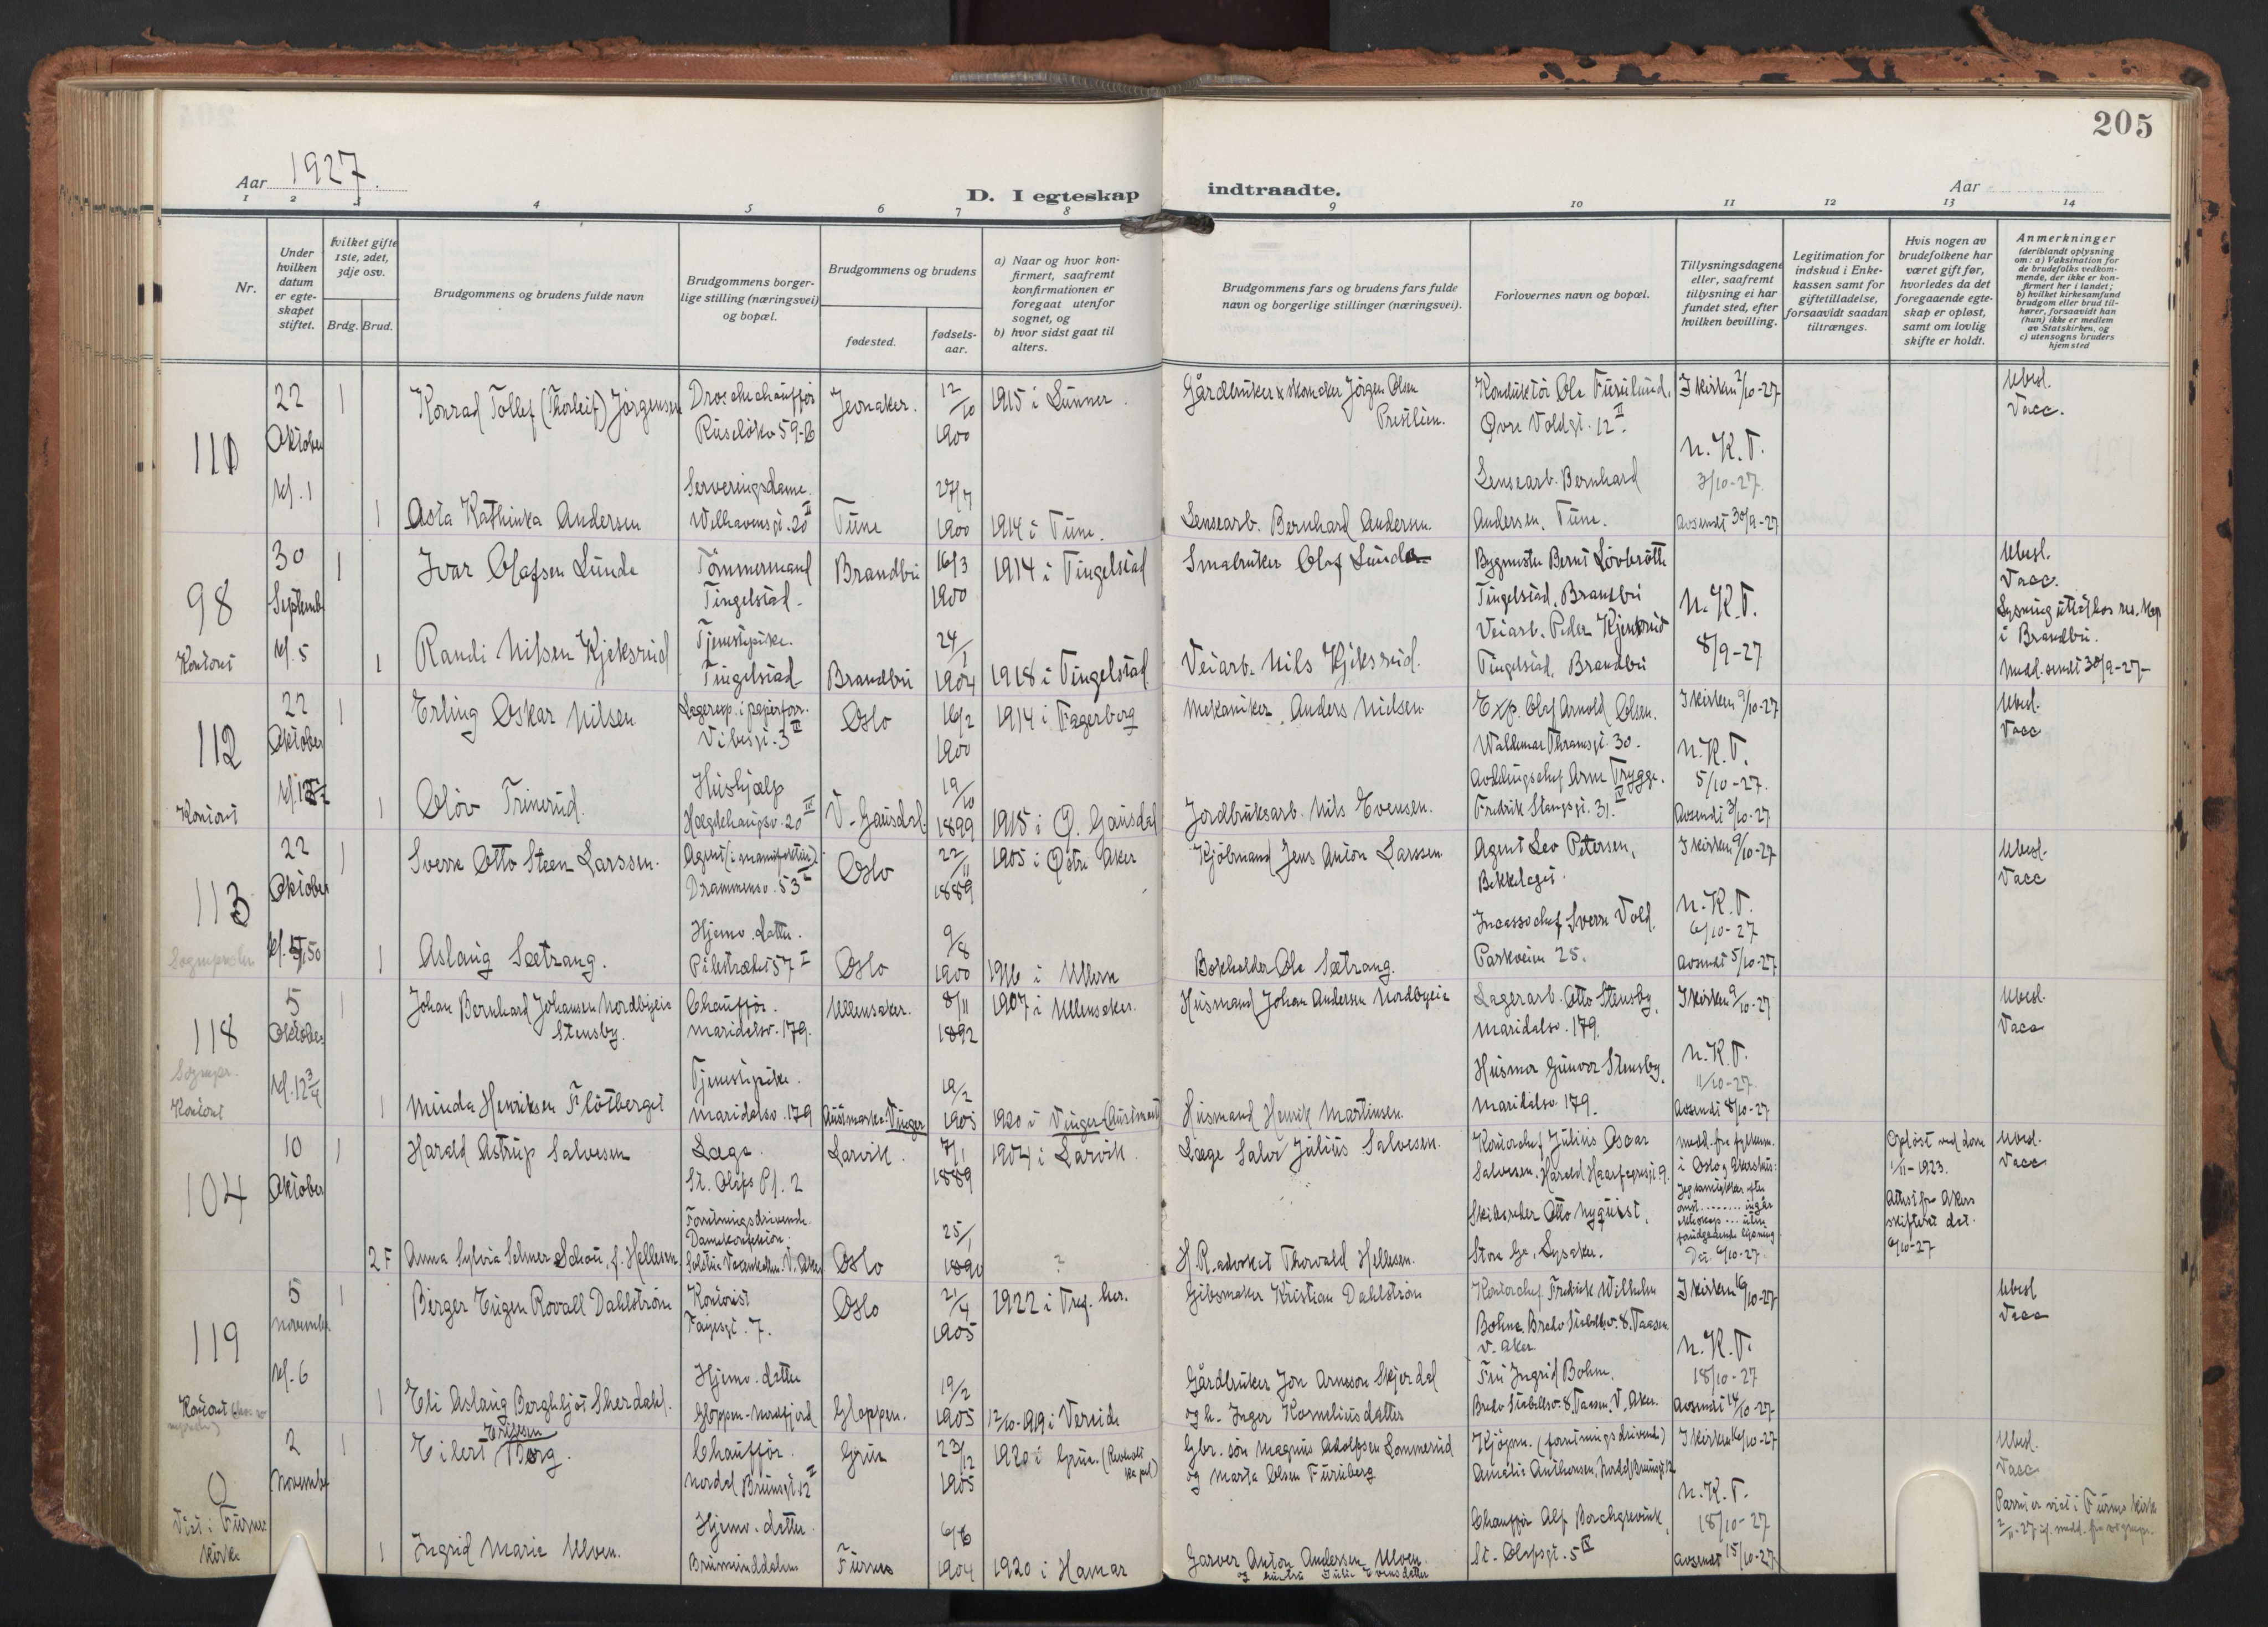 205
Aar 1927.
D. I egteskap indtraadte.
Aar
1 2 3 4 5 6 7 8 9 10 11 12 13 14
Nr.
Under hvilken datum er egteskapet stiftet.
Hvilket gifte 1ste, 2det, 3dje osv.
Brdg. Brud.
Brudgommens og brudens fulde navn
Brudgommens borgerlige stilling (næringsvei) og bopæl.
Brudgommens og brudens
fødested.
fødselsaar.
a) Naar og hvor konfirmert, saafremt konfirmationen er foregaat utenfor sognet, og
b) hvor sidst gaat til alters.
Brudgommens fars og brudens fars fulde navn og borgerlige stillinger (næringsvei).
Forlovernes navn og bopæl.
Tillysningsdagene eller, saafremt tillysning ei har fundet sted, efter hvilken bevilling.
Legitimation for indskud i Enkekassen samt for giftetilladelse, forsaavidt saadan tiltrænges.
Hvis nogen av brudefolkene har været gift før, hvorledes da det foregaaende egteskap er opløst, samt om lovlig skifte er holdt.
Anmerkninger
(deriblandt oplysning om: a) Vaksination for de brudefolks vedkommende, der ikke er konfirmert her i landet; b) hvilket kirkesamfund brudgom eller brud tilhører, forsaavidt han (hun) ikke er medlem av Statskirken, og c) utensogns bruders hjemsted
110
22 Oktober kl. 1
1 Konrad Tollef (Thorleif) Jørgensen
Droschechauffør
Ruseløkv 59-b
Jevnaker.
12/10 1900
1915 i Lunner.
Gårdbruker & skomaker Jørgen Olsen
Presttien.
Konduktør Ole Furulund,
Øvre Voldgt. 12 II.
I kirken 2/10-27
N.K.T.
3/10-27.
Avsendt 30/9-27
Ubesl.
Vacc.
1 Asta Kathinka Andersen
Serveringsdame.
Welhavensgt. 20 II
Tune
27/7 1900
1914 i Tune.
Lensearb. Bernhard Andersen.
Lensearb. Bernhard
Andersen, Tune.
98
Kontoret
30 Septemb kl. 5
1 Ivar Olafsen Lunde
Tømmermand
Tingelstad.
Brandbu
16/3 1900
1914 i Tingelstad
Småbruker Olaf Lunde
Bygmester Bernt Løvbrøtte
Tingelstad, Brandbu
N.K.T.
8/9-27
Ubesl.
Vacc.
i Brandbu.
Medd. sendt 30/9-27-
1 Randi Nilsen Kjeksrud
Tjenestepike.
Tingelstad
Brandbu
24/1 1904
1918 i Tingelstad
Veiarb. Nils Kjeksrud.
Veiarb. Peder Kjeksrud
Tingelstad, Brandbu
112
Kontoret
22 Oktober
1 Erling Oskar Nilsen
Lagereksp. i papirforr.
Vibesgt. 3 II
Oslo
16/2 1900
1914 i Fagerberg
Mekaniker Anders Nielsen
Exp. Olaf Arnold Olsen.
Waldemar Thranesgt. 30.
I kirken 9/10-27
N.K.T.
5/10-27.
Avsendt 3/10-27
Ubesl.
Vacc
1 Oløv Trinerud.
Hushjælp
Hægdehaugsv. 20 III
V-Gausdal.
19/10 1899
1915 i Ø. Gausdal
Jordbruksarb. Nils Evensen.
Avdelingschef Arne Trygge.
Fredrik Stangsgt. 31. IV
113
Sogneprsten
22 Oktober
1 Sverre Otto Steen Larssen.
Agent (i manufaktur)
Drammensv. 53 I
Oslo
22/11 1889
1905 i Østre Aker
Kjøbmand Jens Anton Larssen
Agent Leo Petersen,
Bekkelaget.
I kirken 9/10-27
N.K.T.
6/10-27
Avsendt 5/10-27
Ubesl.
Vacc
1 Aslaug Sætrang.
Hjemv. datter.
Pilestrædet 57 I
Oslo
9/8 1900
1916 i Ullern
Bokholder Ole Sætrang.
Incassochef Sverre Vold.
Parkveien 25.
118
Sognepr.
Kontoret
5 Oktober kl. 12 3/4
1 Johan Bernhard Johansen Nordbyeie
Stensby.
Chauffør.
Maridalsv. 179.
Ullensaker.
8/11 1892
1907 i Ullensaker.
Husmand Johan Andersen Nordbyeie
Lagerarb. Otto Stensby,
Maridalsv. 179.
I kirken 9/10-27
N.K.T.
11/10-27.
Avsendt 8/10-27
Ubesl.
Vacc
1 Minda Henriksen Fløtberget
Tjenestepike.
Maridalsv. 179
Austmarka Vinger
19/2 1905
1920 i Vinger (Austmark)
Husmand Henrik Martinsen.
Husmor Gunvor Stensby,
Maridalsv. 179.
104
10 Oktober
1 Harald Astrup Salvesen
Læge.
St. Olafs Pl. 2
Larvik.
7/1 1889
1904 i Larvik.
Læge Salve Julius Salvesen.
Kontorchef Julius Oscar
Salvesen, Harald Haarfagresgt. 9.
Medd. fra fylkesm.
i Oslo & Akershus:
Dat. 6/10-27.
Opløst ved dom
1/11-1923.
Attest fra Akers
skifterett dat.
6/10-27
Ubesl.
Vacc
2 F Anna Sylvia Selmer Schou, f. Hellesen
Forretningsdrivende.
Damekonfeksjon.
Oslo
25/1 1890
?
H.R.advokat Thorvald Hellesen.
Skibsreder Otto Nyquist,
Store Ga., Lysaker.
119
Kontoret
5 November kl. 6
1 Berger Eugen Rovall Dahlstrøm
Kontorist
Fagesgt. 7.
Oslo
21/4 1905
1922 i Tref. her.
Gibsmaker Kristian Dahlstrøm
Kontorchef Fredrik Wilhelm
Bohne, Bredo Stabells v. 8, Taasen
V. Aker.
I kirken 16/10-27
N.K.T.
18/10-27
Avsendt 14/10-27
Ubesl
Vacc
1 Eli Aslaug Bergljot Skerdahl.
Hjemv. datter
Gloppen-Nordfjord
Gloppen.
19/2 1905
12/10-1919 i Vereide
Gårdbruker Jon Arneson Skjerdal
og h. Inger Korneliusdatter
Fru Ingrid Bohne.
Bredo Stabells v. 8, Taasen, V. Aker.
0
Viet i Furnes
kirke
2 November
1 Eilert Eriksen Borg.
Chauffør.
Nordal Brunsgt. 12 II
Grue
23/12 1905
1920 i Grue.
Gbr. søn Magnus Adolfsen Sommerud
og Marta Olsen Furuberg
Kjøpm. (forretningsdrivende)
Amalie Anthonsen, Nordal Brunsgt 12
I kirken 16/10-27
N.K.T.
18/10-27
Avsendt 15/10-27
Ubesl.
Vacc
Parret er viet i Furnes kirke
2/11-27 if. medd. fra sognepr.
1 Ingrid Marie Ulven.
Hjemv. datter.
Brumunddalen
Furnes
6/6 1904
1920 i Hamar
Garver Anton Andersen Ulven.
og hustru Julie Evensdatter
Chauffør Alf Borchgrevink,
St. Olafsgt. 5 IV